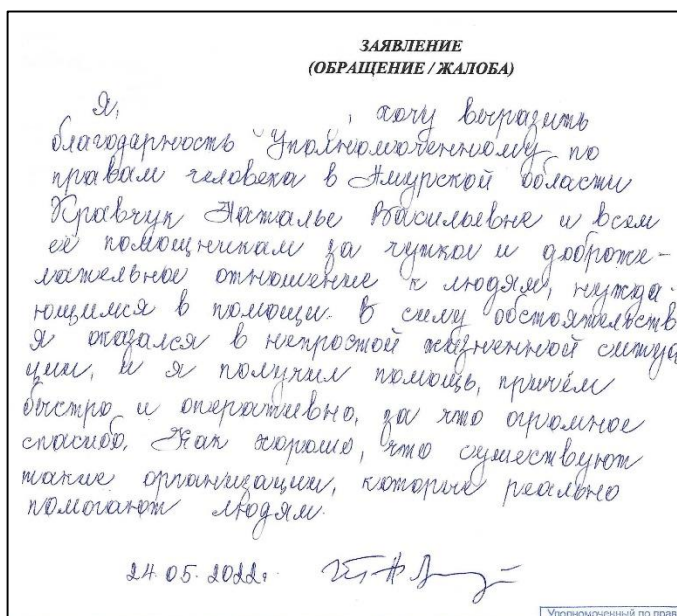 ЗАЯВЛЕНИЕ
(ОБРАЩЕНИЕ / ЖАЛОБА)
Я, , хочу выразить
благодарность Уполномоченному по
правам человека в Амурской области
Кравчук Наталье Васильевне и всем
её помощникам за чуткое и доброже-
лательное отношение к людям, нужда-
ющимся в помощи. В силу обстоятельств
я оказался в непростой жизненной ситуа
ции, и я получил помощь, причём
быстро и оперативно, за что огромное
спасибо. Как хорошо, что существуют
такие организации, которые реально
помогают людям.
24.05.2022г.
Уполномоченный по прав